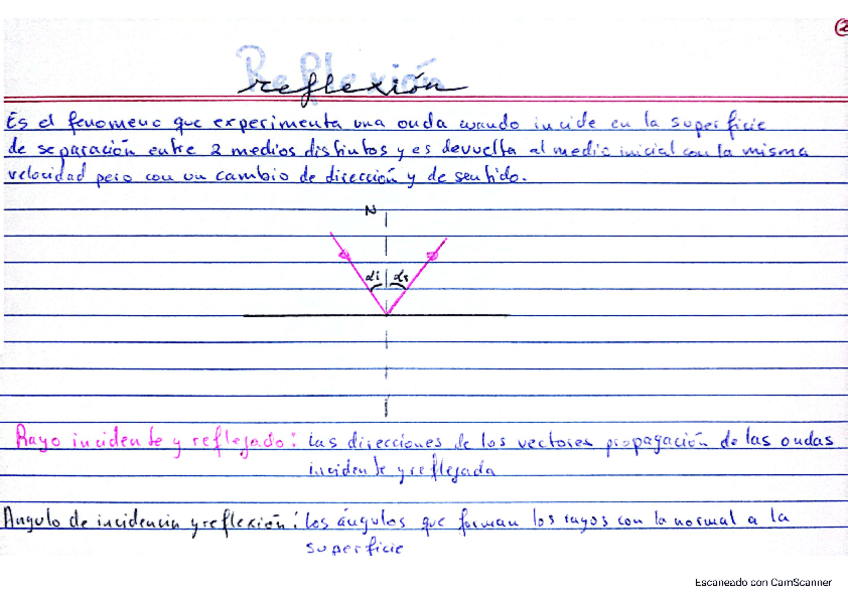 2
Reflexión
reflexión
Es el fenomeno que experimenta una onda cuando incide en la superficie
de separación entre 2 medios distintos y es devuelta al medio inicial con la misma
velocidad pero con un cambio de dirección y de sentido.
N
αi αr
Rayo incidente y reflejado: las direcciones de los vectores propagación de las ondas
incidente y reflejada
Angulo de incidencia y reflexión: los ángulos que forman los rayos con la normal a la
superficie
Escaneado con CamScanner